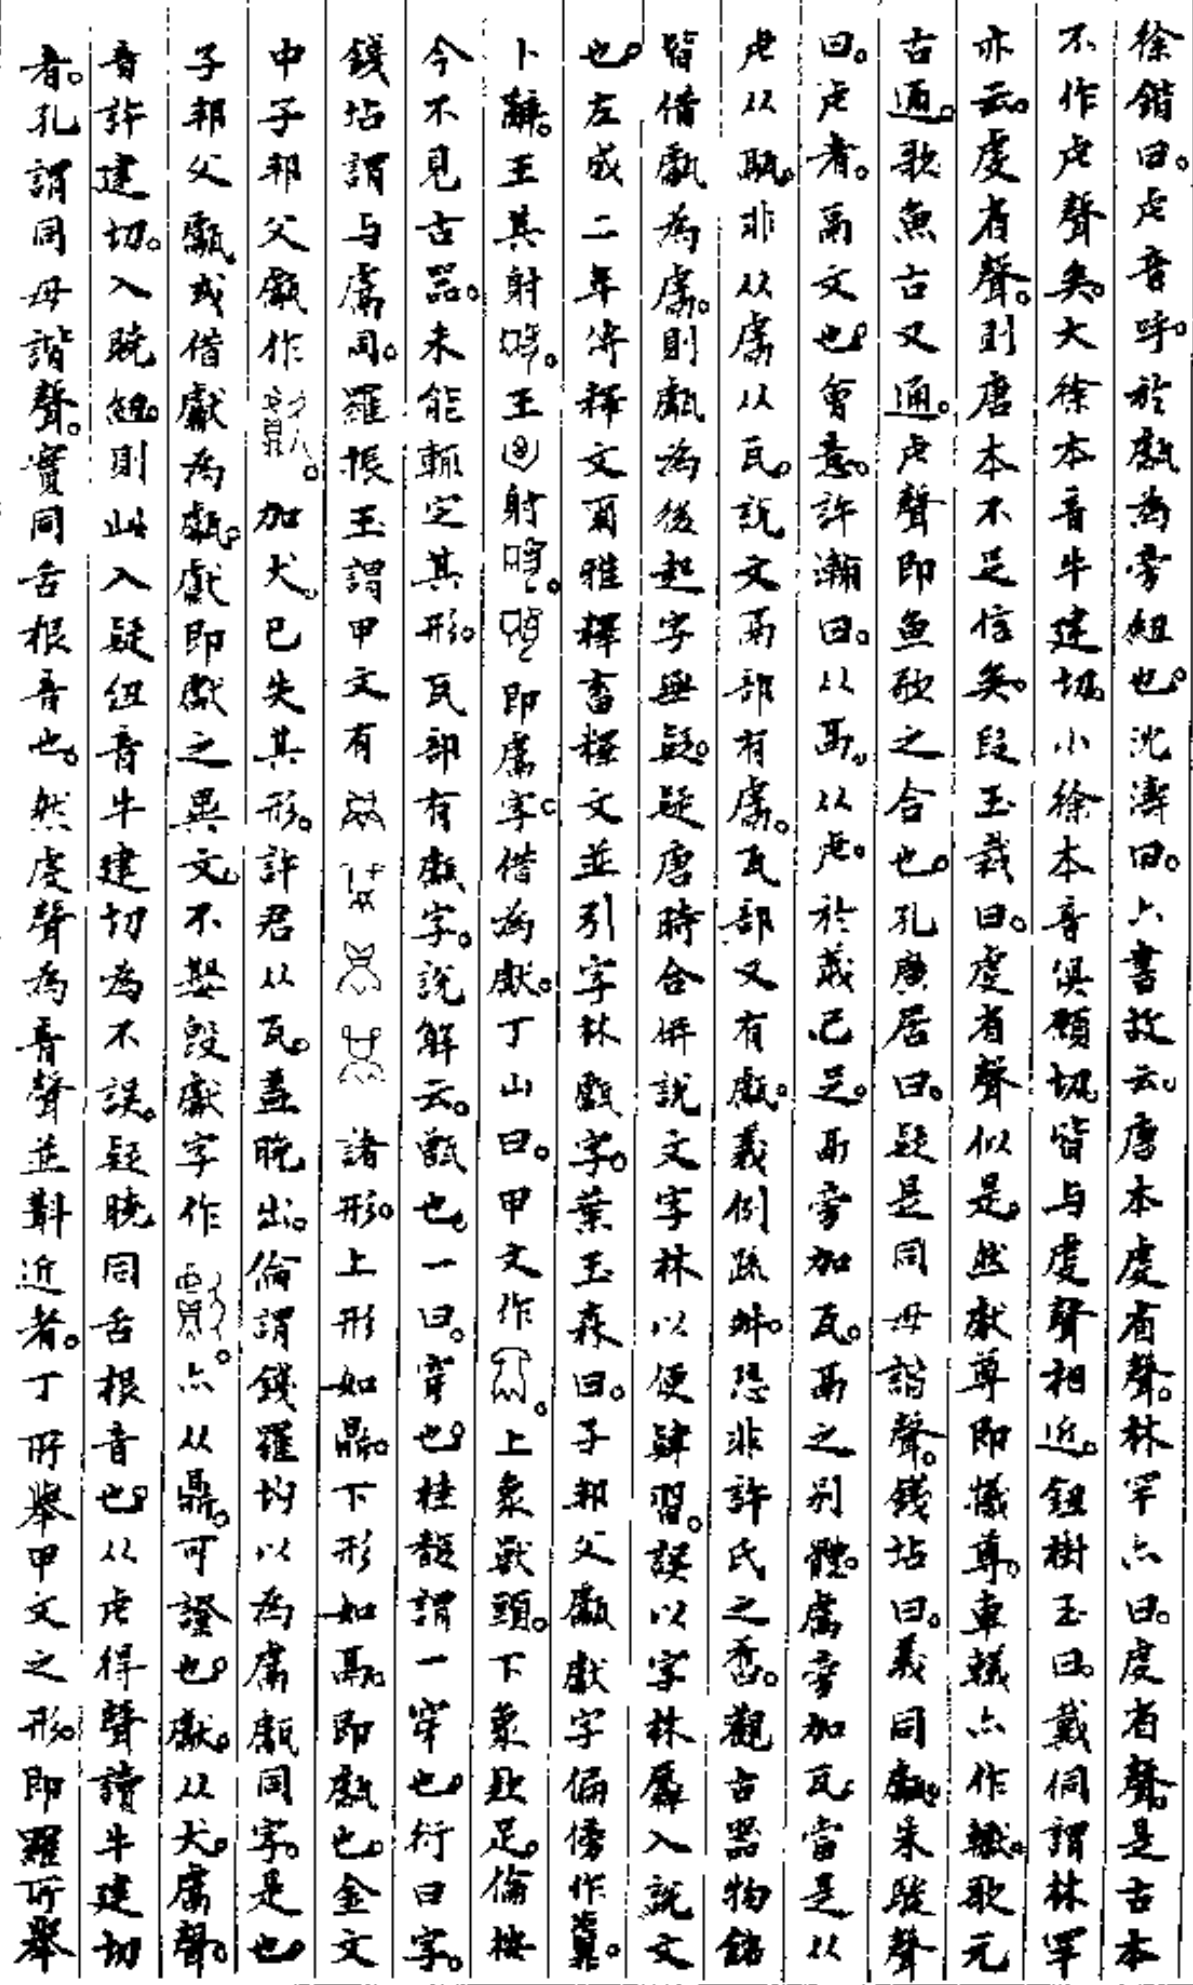 徐鍇曰。虍音呼。於鬳為旁紐也。沈濤曰。六書故云。唐本虔省聲。林罕亦曰。虔省聲。是古本
不作虍聲矣。大徐本音牛建切。小徐本音俱願切。皆与虔聲相近。鈕樹玉曰。戴侗謂林罕
亦云。虔省聲。則唐本不足信矣。段玉裁曰。虔省聲似是。然獻尊即犧尊。車轙亦作钀。歌元
古通。歌魚古又通。虍聲即魚歌之合也。孔廣居曰。疑是同母諧聲。錢坫曰。義同甗。朱駿聲
曰。虍者。鬲文也。會意。許瀚曰。从鬲。从虍。於義已足。鬲旁加瓦。鬲之別體。鬳旁加瓦。當是从
虍从㼚。非从鬳从瓦。說文鬲部有鬳。瓦部又有甗。義例疏舛。恐非許氏之舊。觀古器物銘
皆借甗為鬳。則甗為後起字無疑。疑唐時合併說文字林以便肄習。誤以字林羼入說文
也。左成二年傳釋文爾雅釋畜釋文並引字林甗字。葉玉森曰。子邦父甗獻字偏傍作。
卜辭。王其射。王射。即鬳字。借為獻。丁山曰。甲文作。上象獸頭。下象款足。倫按
今不見古器。未能輒定其形。瓦部有甗字。說解云。甑也。一曰。穿也。桂馥謂一穿也。衍曰字。
錢坫謂与鬳同。羅振玉謂甲文有諸形。上形如鼎。下形如鬲。即甗也。金文
中子邦父甗作。加犬。已失其形。許君从瓦。蓋晚出。倫謂錢羅均以為鬳甗同字。是也。
子邦父甗。或借獻為甗。獻即獻之異文。不𡢁殷獻字作。亦从鼎。可證也。獻。从犬。鬳聲。
音許建切。入曉紐。則此入疑紐音牛建切為不誤。疑曉同舌根音也。从虍得聲讀牛建切
者。孔謂同母諧聲。實同舌根音也。然虔聲為音聲並斠近者。丁所舉甲文之形。即羅所舉